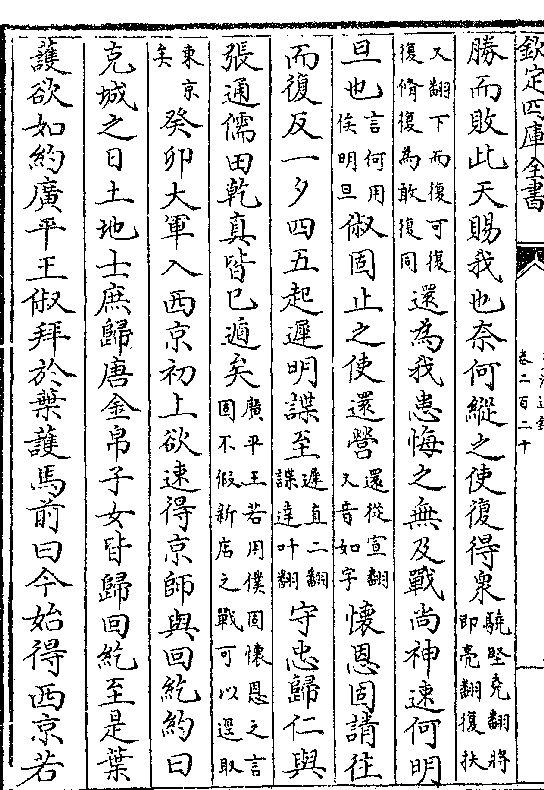 欽定四庫全書
卷二百二十
勝而敗此天賜我也奈何縱之使復得衆驍堅堯翻將即亮翻復扶
又翻下而復可復復脩復為敢復同還為我患悔之無及戰尚神速何明
旦也言何用俟明旦俶固止之使還營還從宣翻又音如字懷恩固請往
而復反一夕四五起遲明諜至遲直二翻諜達叶翻守忠歸仁與
張通儒田乾真皆已遁矣廣平王若用僕固懷恩之言固不假新店之戰可以逕取
東京矣癸卯大軍入西京初上欲速得京師與回紇約曰
克城之日土地士庶歸唐金帛子女皆歸回紇至是葉
護欲如約廣平王俶拜於葉護馬前曰今始得西京若